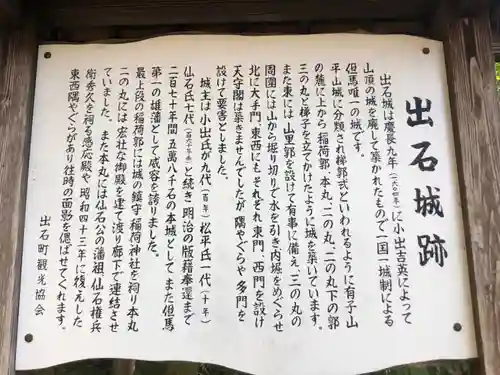 出石城跡
出石城は慶長九年(一六〇四年)に小出吉英によって
山頂の城を廃して築かれたもので一国一城制による
但馬唯一の城です。
平山城に分類され梯郭式といわれるように有子山
の麓に上から稲荷郭、本丸、二の丸、二の丸下の郭
三の丸と梯子を立てかけたように城を築いています。
また東には山里郭を設けて有事に備え、三の丸の
周囲には山から堀り切りて水を引き内堀をめぐらせ
北に大手門、東西にもそれぞれ東門、西門を設け
天守閣は築きませんでしたが隅やぐらや多門を
設けて要害としました。
城主は小出氏が九代(百年)松平氏一代(十年)
仙石氏七代(百六十年余)と続き明治の版籍奉還まで
二百七十年間五萬八千石の本城としてまた但馬
第一の雄藩として威容を誇りました。
最上段の稲荷郭には城の鎮守稲荷神社を祀り本丸
二の丸には宏壮な御殿を建て渡り廊下で連結させ
ていました。また本丸には仙石公の藩祖仙石権兵
衛秀久を祀る感応殿や昭和四十三年に復えした
東西隅やぐらがあり往時の面影を偲ばせてくれます。
出石町観光協会